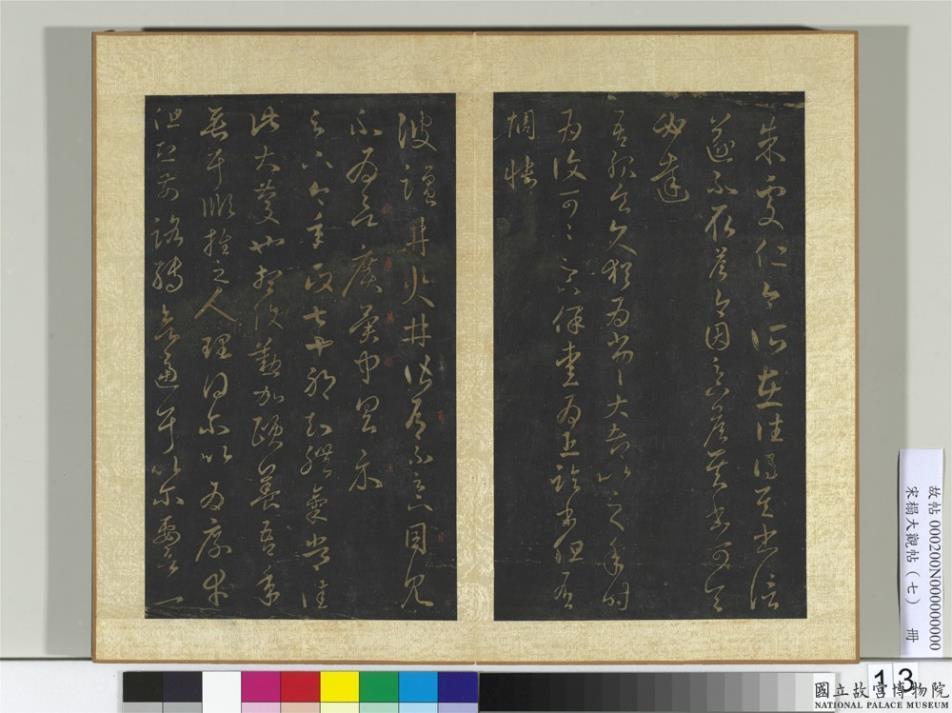 朱處仁今所在往得其書信
遂不取答今因足下答其書可令
必達
吾服食久猶為劣劣大都比之年時
為復可可足下保愛為上臨書但有
惆悵
彼鹽井火井皆有不足下目見
不為欲廣異聞具示
足下今年政七十耶知體氣常佳
此大慶也想復懃加頤養吾年
垂耳順推之人理得爾以為厚幸
但恐前路轉欲逼耳以爾要欲一
故帖 000200N000000000
宋榻大觀帖(七) 冊
13
國立故宮博物院
NATIONAL PALACE MUSEUM